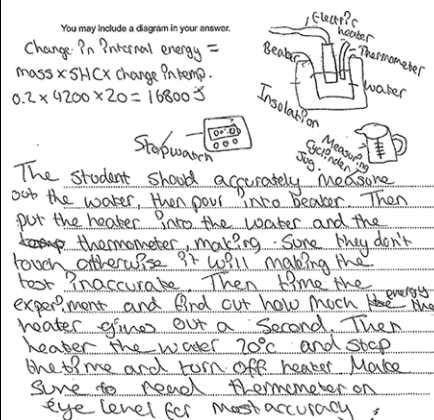 You may include a diagram in your answer.
Change in internal energy =
mass x SHC x change in temp.
0.2 x 4200 x 20 = 16800 J
Electric heater
Thermometer
Beaker
water
Insolation
Stopwatch
Measuring Cyclinder Jug.
The student should accurately measure
out the water, then pour into beaker. Then
put the heater into the water and the
thermometer, making sure they don't
touch otherwise it will making the
test inaccurate. Then time the
experiment and find out how much energy the
heater gives out a second. Then
heater the water 20°c and stop
the time and turn off heater. Make
sure to read thermometer on
eye level for most accuracy.